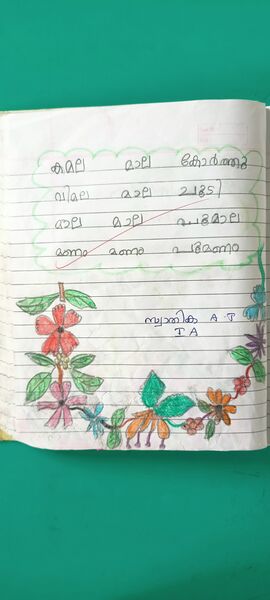 കമല മാല കോർത്തു
വിമല മാല ചൂടി
മാല മാല പൂമാല
മണം മണം പൂമണം
സ്വാതിക A J
I A